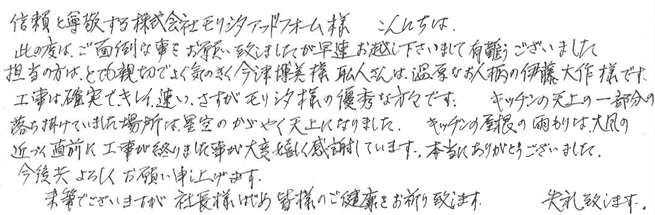 信頼と尊敬する株式会社モリシタアットホーム様　こんにちは。
此の度は、ご面倒な事をお願い致しましたが早速お越し下さいまして有難うございました
担当の方は、とても親切でよく気のきく今津博美様 職人さんは、温厚なお人柄の伊藤大作様です
工事は確実でキレイ、速い、さすがモリシタ様の優秀な方々です。　キッチンの天上の一部分の
落ち掛けていました場所は星空のかがやく天上になりました。　キッチンの屋根の雨もりは、大風の
近づく直前に工事が終りました事が大変嬉しく感謝しています。本当にありがとうございました。
今後共よろしくお願い申し上げます。
末筆でございますが 社長様はじめ 皆様のご健康をお祈り致します　　失礼致します。